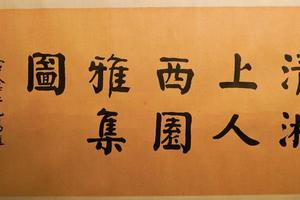 清湘
上人
西園
雅集
圖